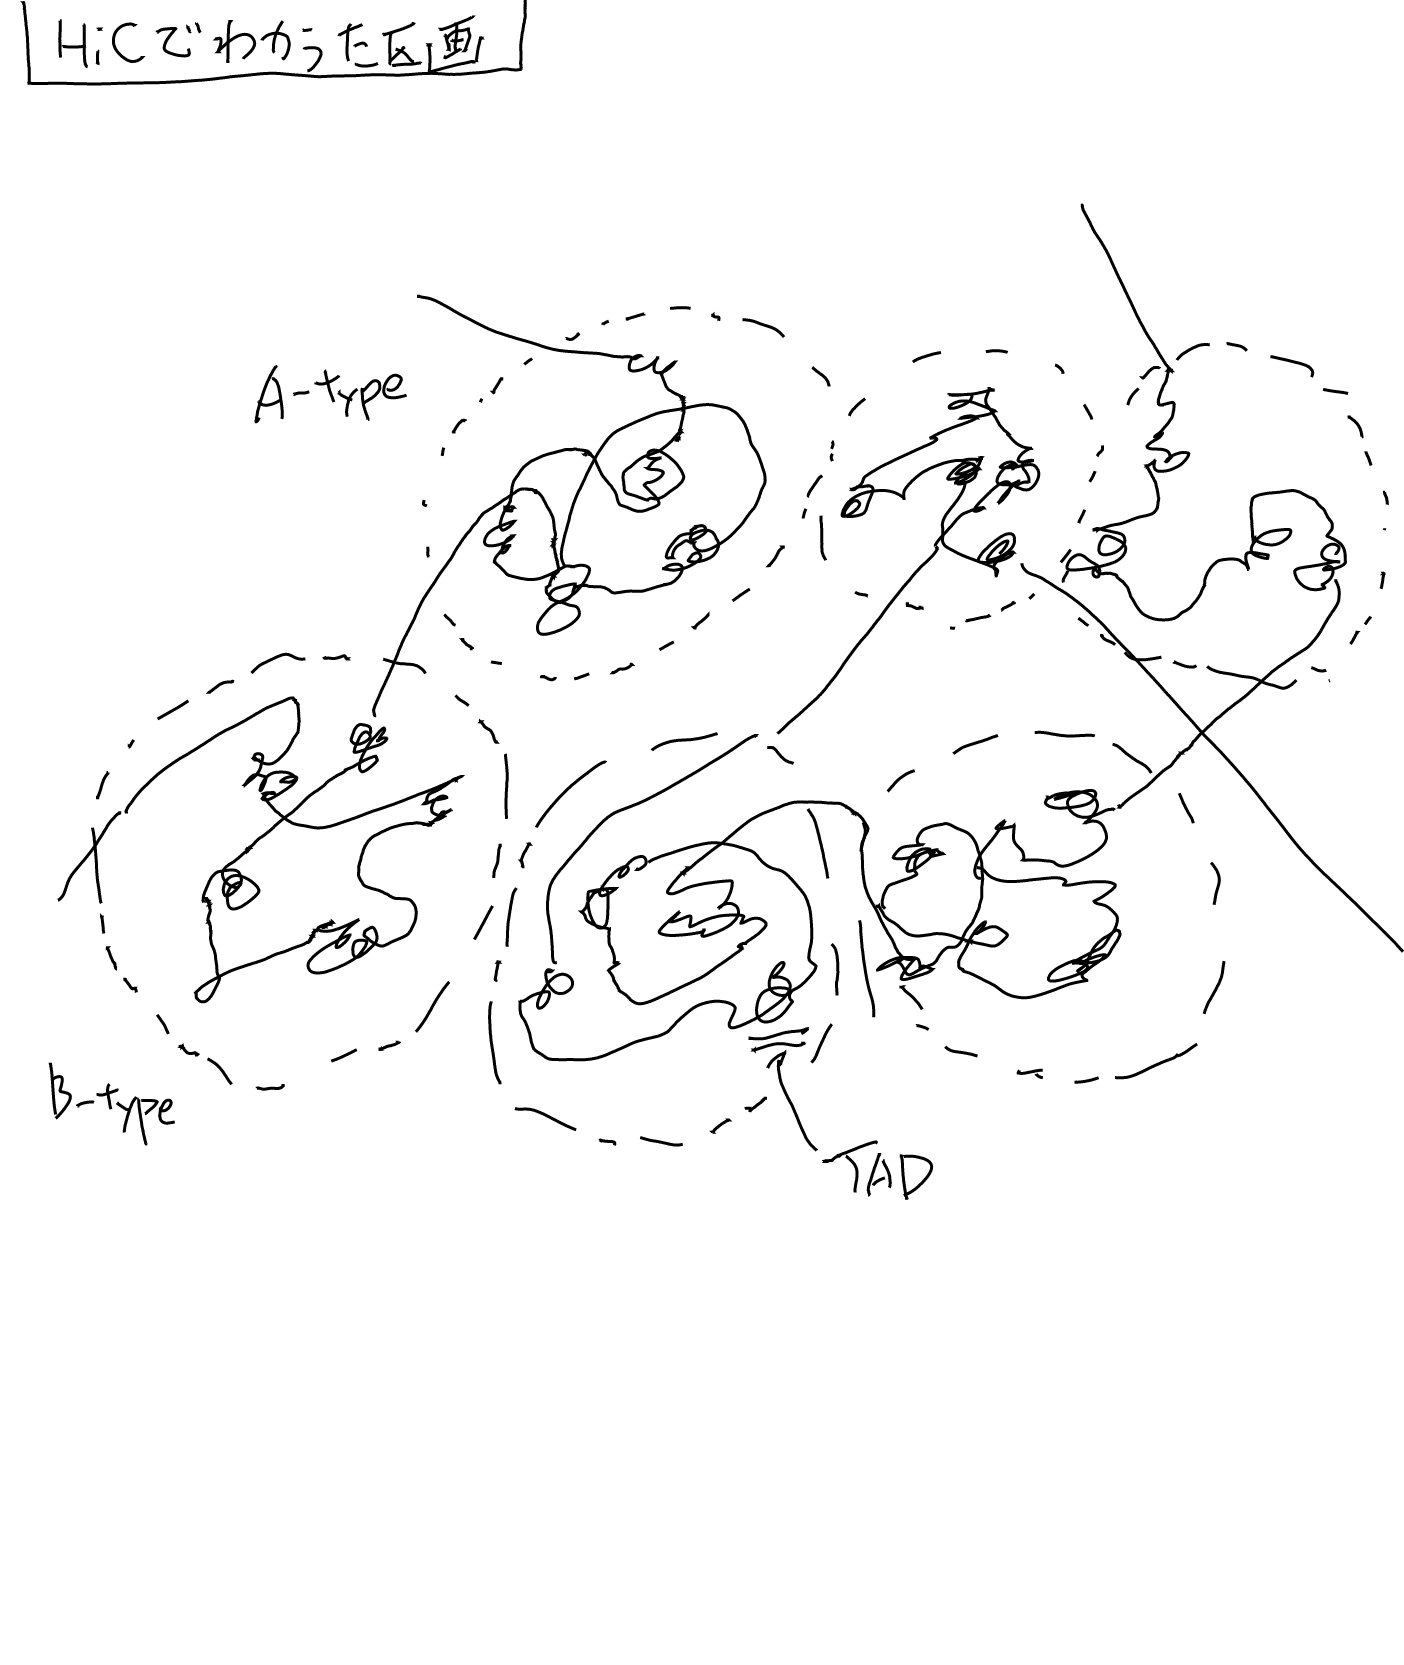 HiCでわかった区画
A-type
B-type
TAD